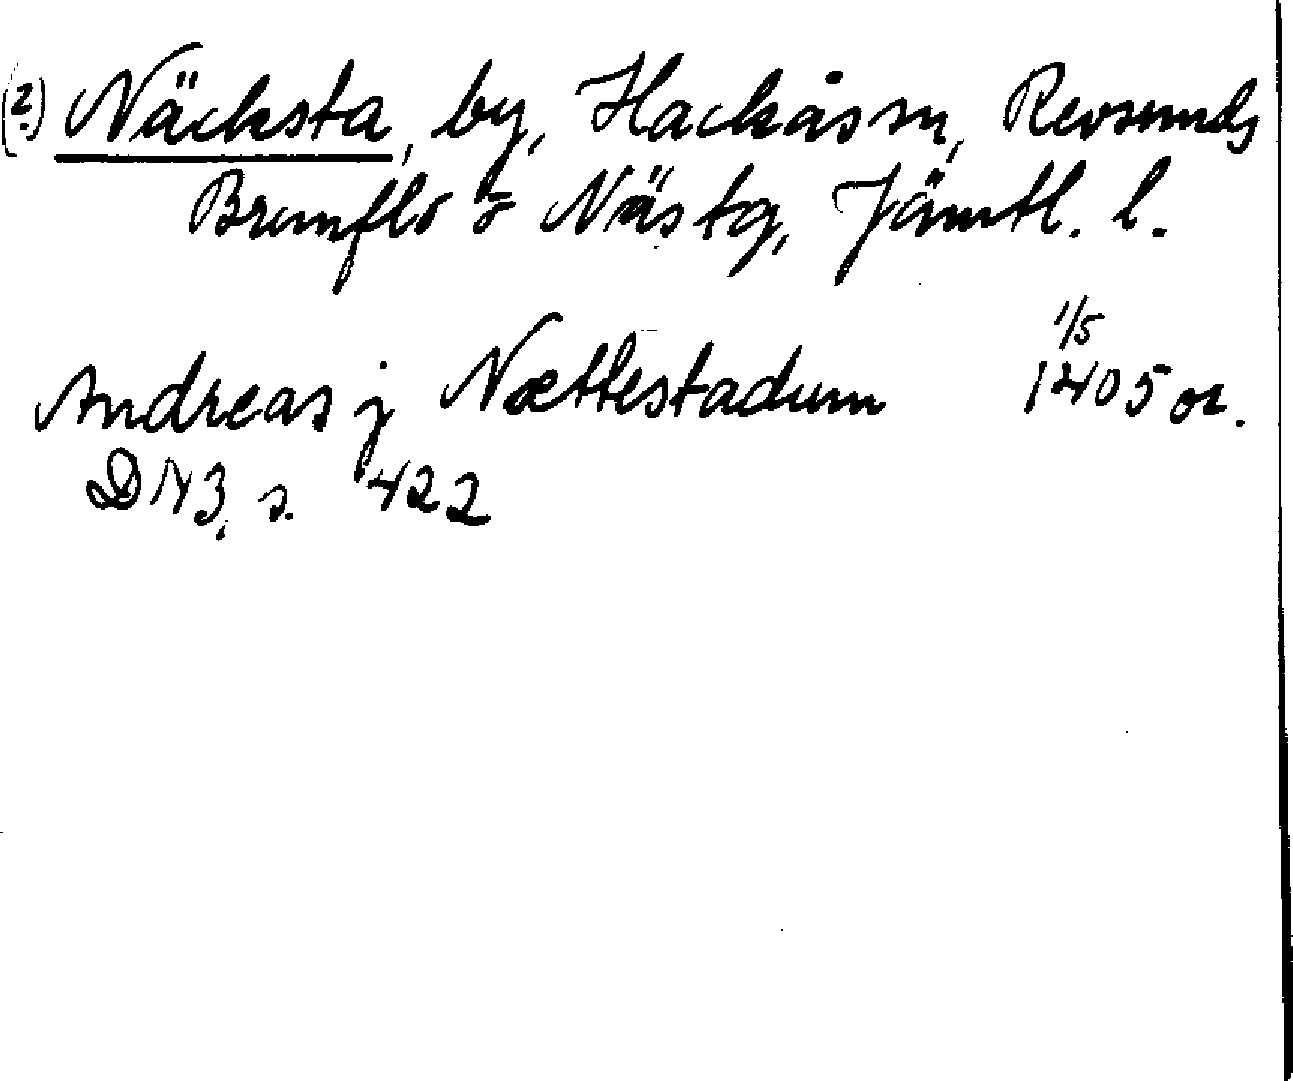 (?) Näcksta, by, Hackås sn, Revsunds
Brunflo o Näs tg, Jämtl. l.
1/5
Andreas j Nættestadum 1405 or.
DN 3, s. 422